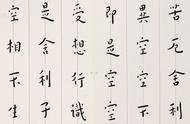 苦厄舍利
異空空不
即是空空
受想行識
是舍利子
空相不生